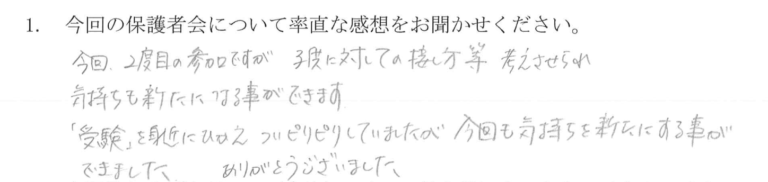 1. 今回の保護者会について率直な感想をお聞かせください。
今回、2度目の参加ですが 子供に対しての接し方等 考えさせられ
気持ちも新たになる事ができます
「受験」を身近にひかえ ついピリピリしていましたが 今回も気持ちを新たにする事が
できました、 ありがとうございました、